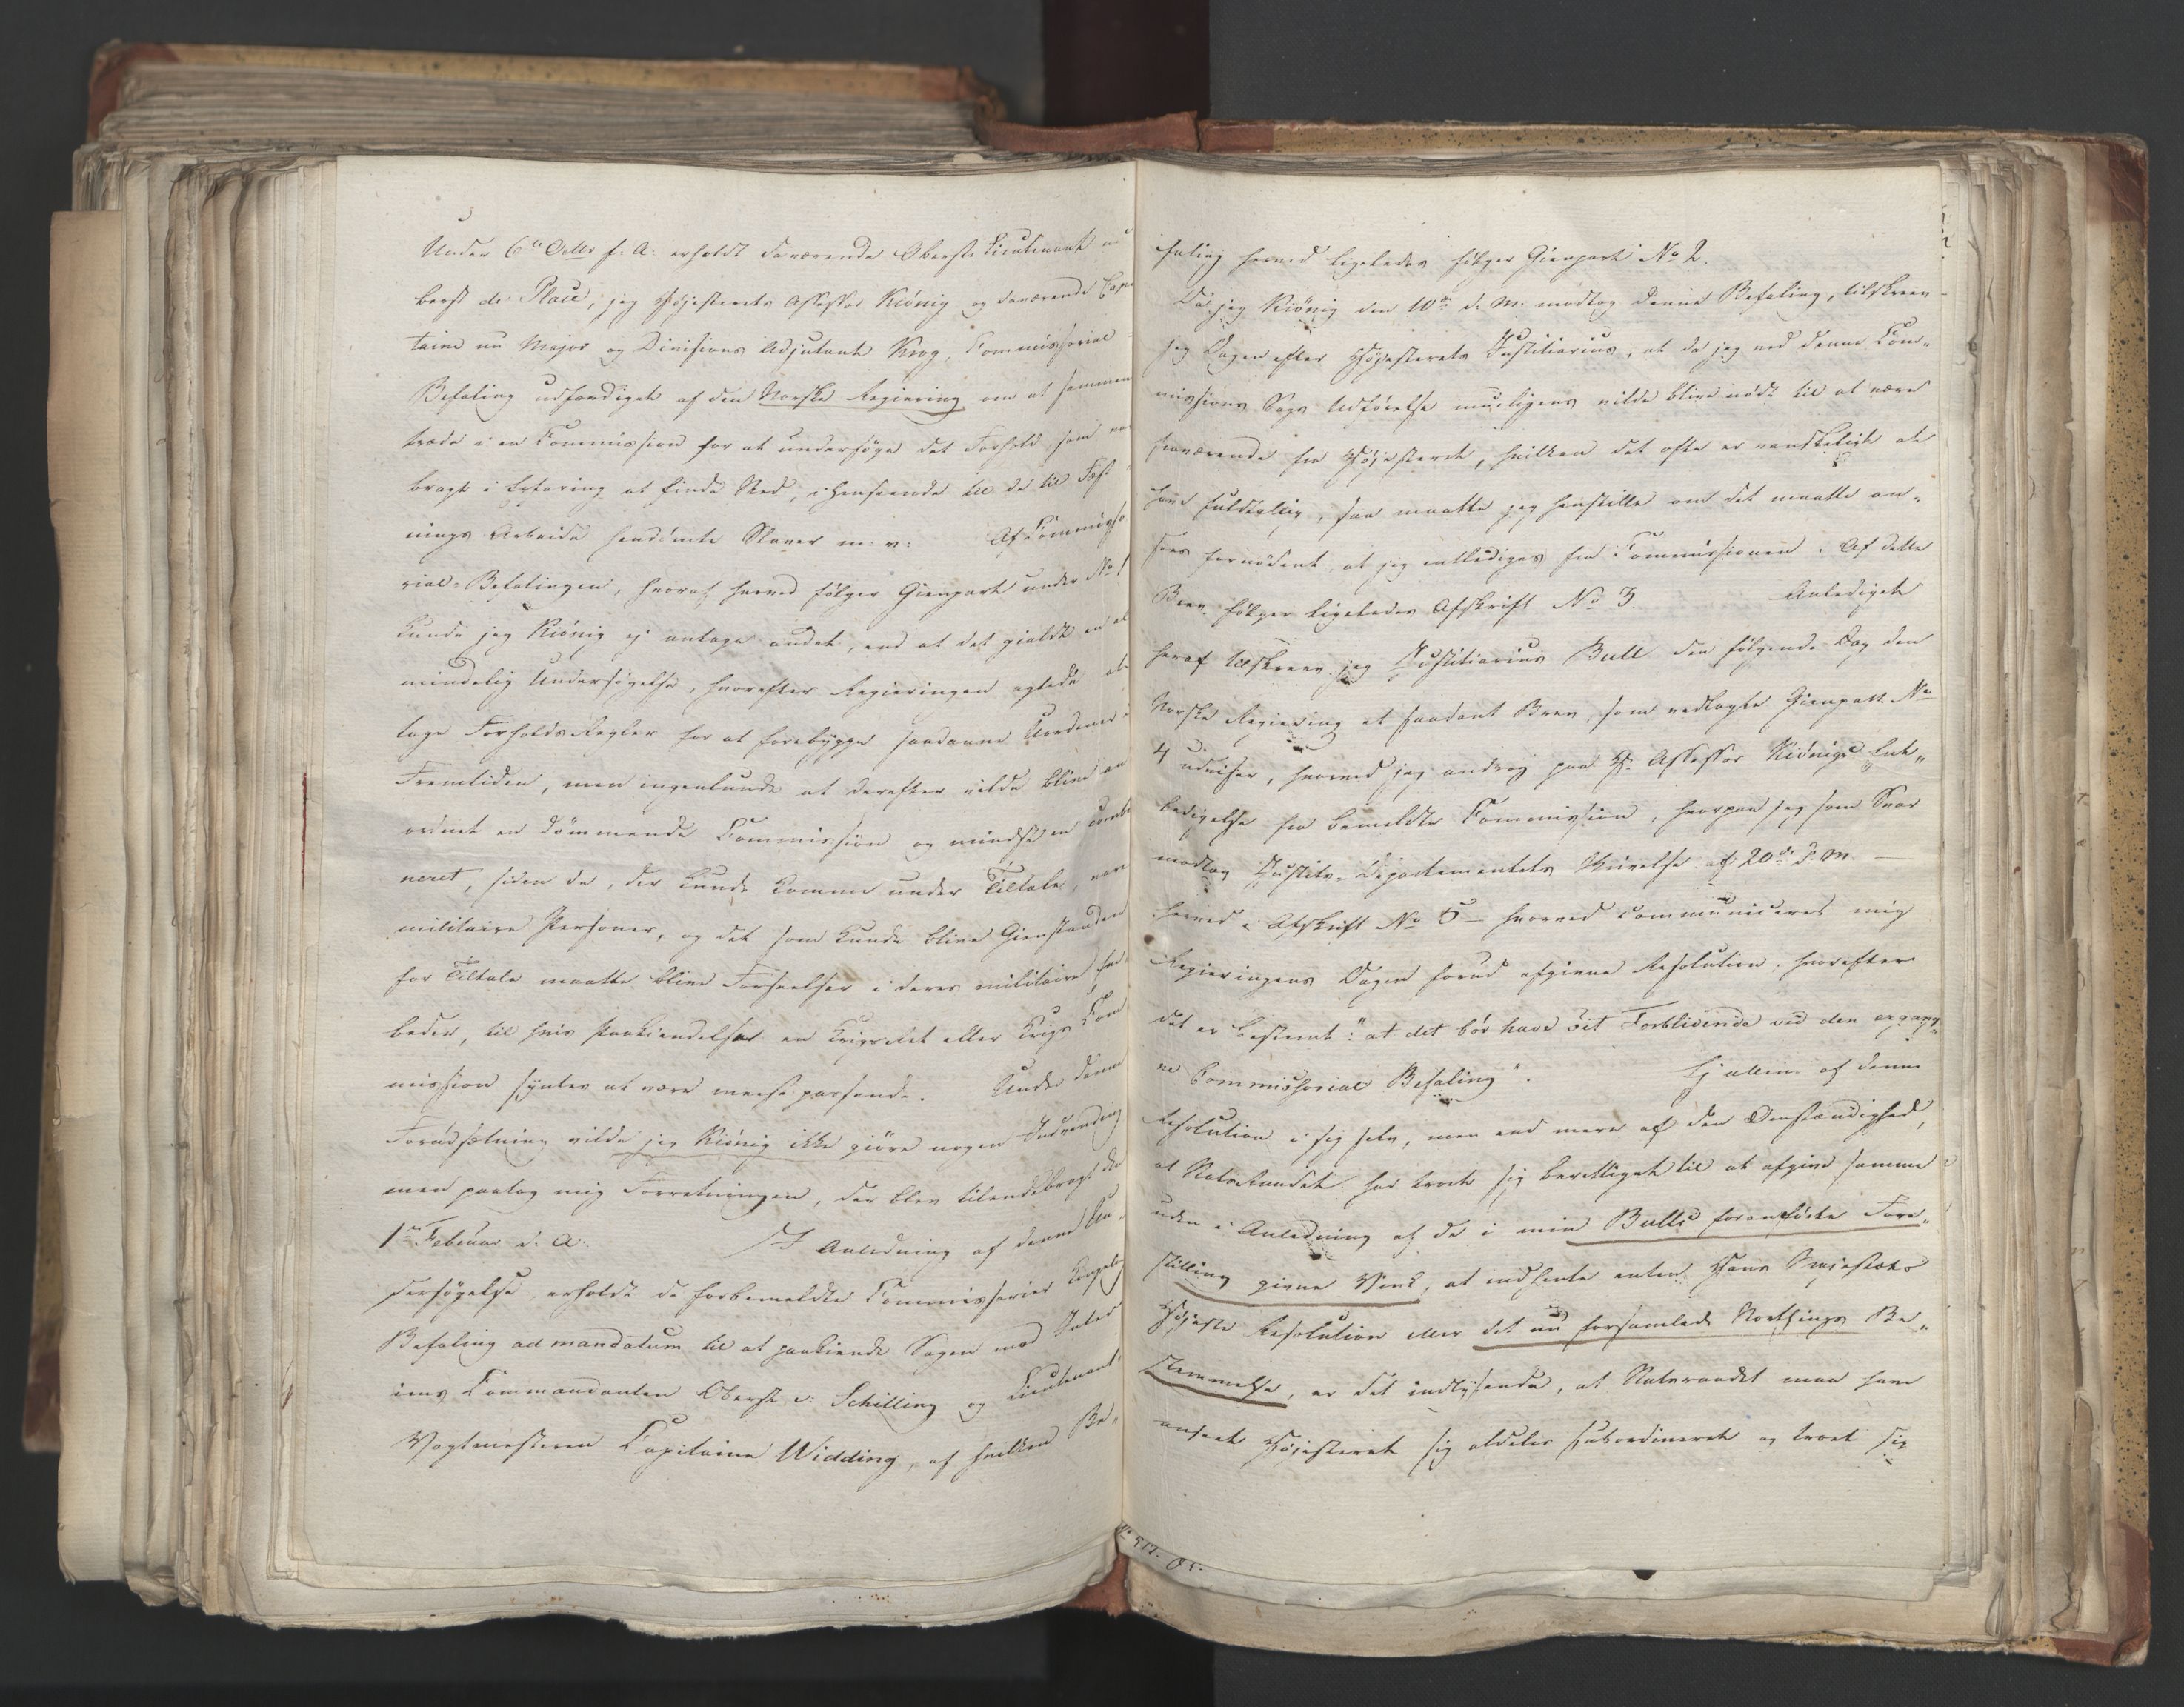 Under 6te Octbr f. A. erholdt daværende Oberste Lieutenant nu
berst de Place, jeg Høiesterets Assessor Kiönig og daværende Cap-
taine nu Major og Divisions Adjutant Krog, Commissorial-
Befaling udfærdiget af den Norske Regiering om at sammen
træde i en Commission for at undersöge det Forhold som var
bragt i Erfaring at finde Sted, i Henseende til de til Fæst-
nings Arbeide hendömte Slaver m. v. Af Commisso-
rial-Befalingen, hvoraf herved fölger Gienpart under No 1
kunde jeg Kiönig ej antage andet, end at det gialdt en al-
mindelig Undersögelse, hvorefter Regieringen agtede at
tage Forholds Regler for at forebygge saadanne Uordener i
Fremtiden, men ingenlunde at derefter vilde blive an
ordnet en dömmende Commission og mindst en combi
neret, siden de, der kunde komme under Tiltale, vare
militaire Personer, og det som kunde blive Gienstanden
for Tiltale maatte blive Forseelser i deres militaire Em
beder, til hvis Paakiendelse en Krigsret eller Krigs Com
mission syntes at være meest passende. Under denne
Forudsætning vilde jeg Kiönig ikke giöre nogen Indvending
men paatog mig Forretningen, der blev tilendebragt den
1ste Februar d. A. I Anledning af denne Un-
dersögelse erholdt de forbemeldte Commissarier Kongelig
Befaling ad mandatum til at paakiende Sagen mod Inter
ims Commandanten Oberst v. Schilling og Lieutenant
Vagtmesteren Capitaine Widding, af hvilken Be-
faling herved ligeledes fölger Gienpart No 2.
Da jeg Kiönig den 10de d. M. modtog denne Befaling, tilskrev
jeg Dagen efter Höjesterets Justitiarius, at da jeg ved denne Com-
missions Sags Udförelse mueligens vilde blive nödt til at være
fraværende fra Höjesteret, hvilken det ofte er vanskeligt at
have fuldtallig, saa maatte jeg henstille om det maatte an-
sees fornödent, at jeg entlediges fra Commissionen. Af dette
Brev fölger ligeledes Afskrift No 3. Anlediget
heraf tilskrev jeg Justitiarius Bull den fölgende Dag den
Norske Regiering et saadant Brev, som vedlagte Gienpart No
4 udviser, hvorved jeg androg paa Hr Assessor Kiönigs Ent-
ledigelse fra bemeldte Commission, hvorpaa jeg som Svar
modtog Justits-Departementets Skrivelse af 20de d. M. –
herved i Afskrift No 5 – hvorved communiceres mig
Regieringens Dagen forud afgivne Resolution, hvorefter
det er bestemt: "at det bör have sit Forblivende ved den ergang-
ne Commissorial Befaling". Ej allene af denne
Resolution i sig selv, men end mere af den Omstændighed,
at Statsraadet har troet sig berettiget til at afgive samme
uden i Anledning af de i min Bulls foranförte Fore-
stilling givne Vink, at indhente enten Hans Majestæts
Höjeste Resolution eller det nu forsamlede Storthings Be-
stemmelse, er det indlysende, at Statsraadet maa have
anseet Höjesteret sig aldeles subordineret og troet sig